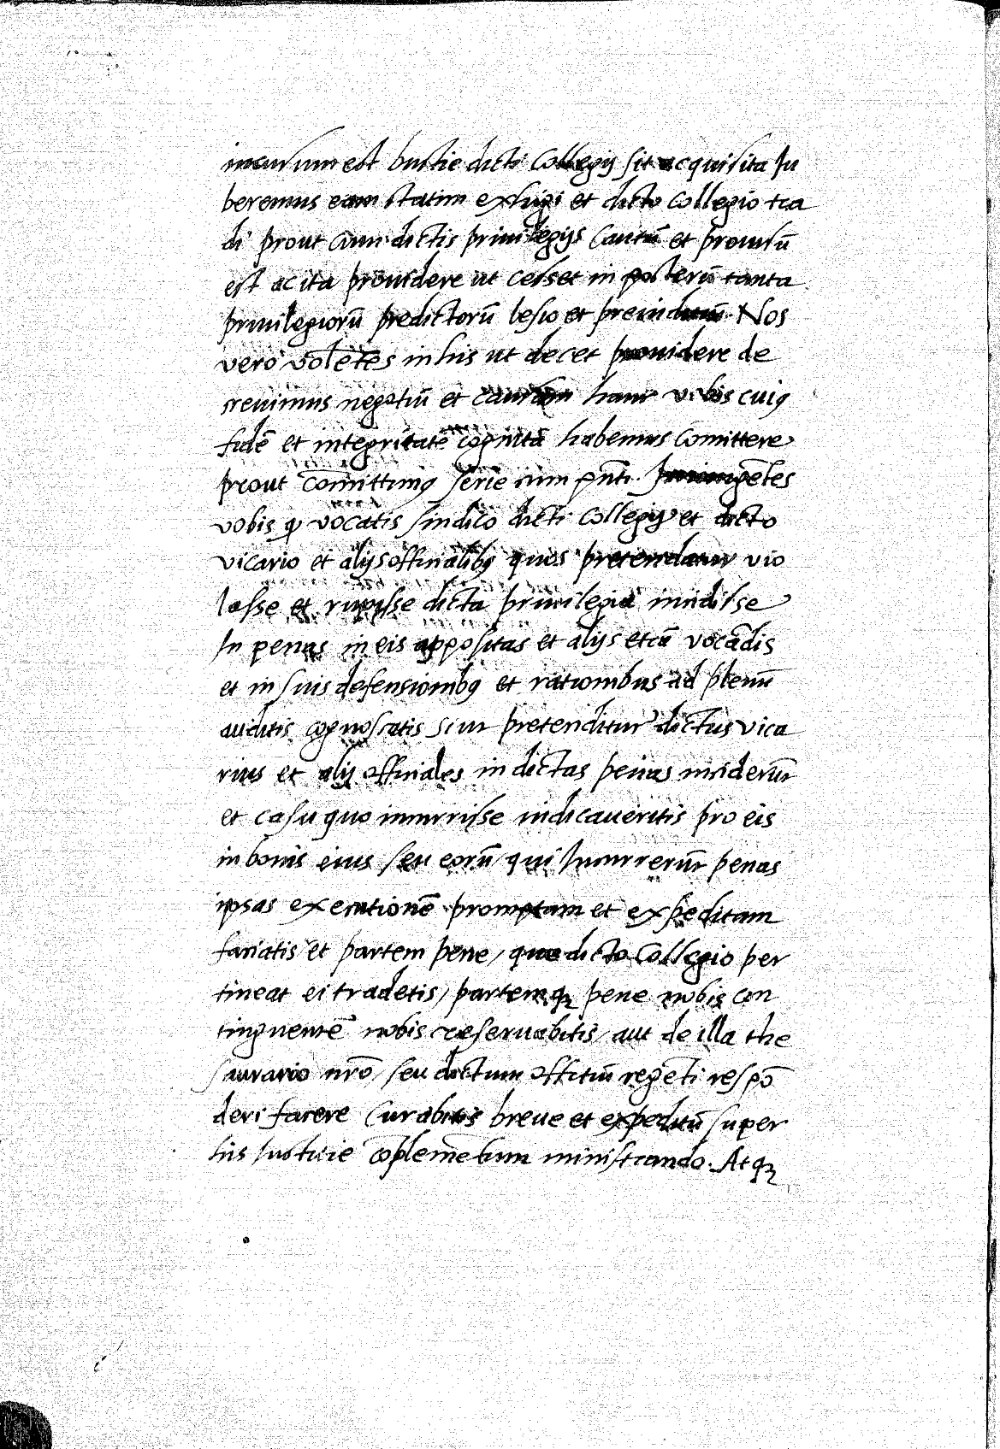 incursum est bursie dicti Collegij sit acquisita Ju
beremus eam statim exhigi et dicto collegio tra
di prout cum dictis priuilegijs Cautũ et prouisũ
est ac ita prouidere ut cesset in posterũ tanta
priuilegiorũ predictorũ lesio et preiudiciũ. Nos
vero volẽtes in his ut decet prouidere de
creuimus negotiũ et causam hanc vobis cuiꝯ
fidẽ et integritatẽ cognitã habemus Comittere
prout Com̃ittimꝯ serie cum p̃nti.
vobis ꝙ vocatis sindico dicti Collegij et dicto
vicario et alijs offitialibꝯ quos pretendatur vio
lasse et rupisse dicta priuilegia incidisse
In penas in eis appositas et alijs etcã vocãdis
et in suis defensionibꝯ et rationibus ad plenũ
auditis cognoscatis si ut pretenditur dictus vica
rius et alij offitiales in dictas penas inciderũt
et casu quo incurrisse indicaueritis pro eis
in bonis eius seu eorũ qui Incurrerũt penas
ipsas executionẽ promptam et expeditam
fatiatis et partem pene / que dicto Collegio per
tineat ei tradetis / partemqȝ pene nobis con
tinguentẽ nobis reseruabitis / aut de illa the
saurario nr̃o / seu dictum offitiũ regẽti respõ
deri facere Curabitis breue et expeditũ super
his Iustitie cõplemẽtum ministrando. Atqȝ